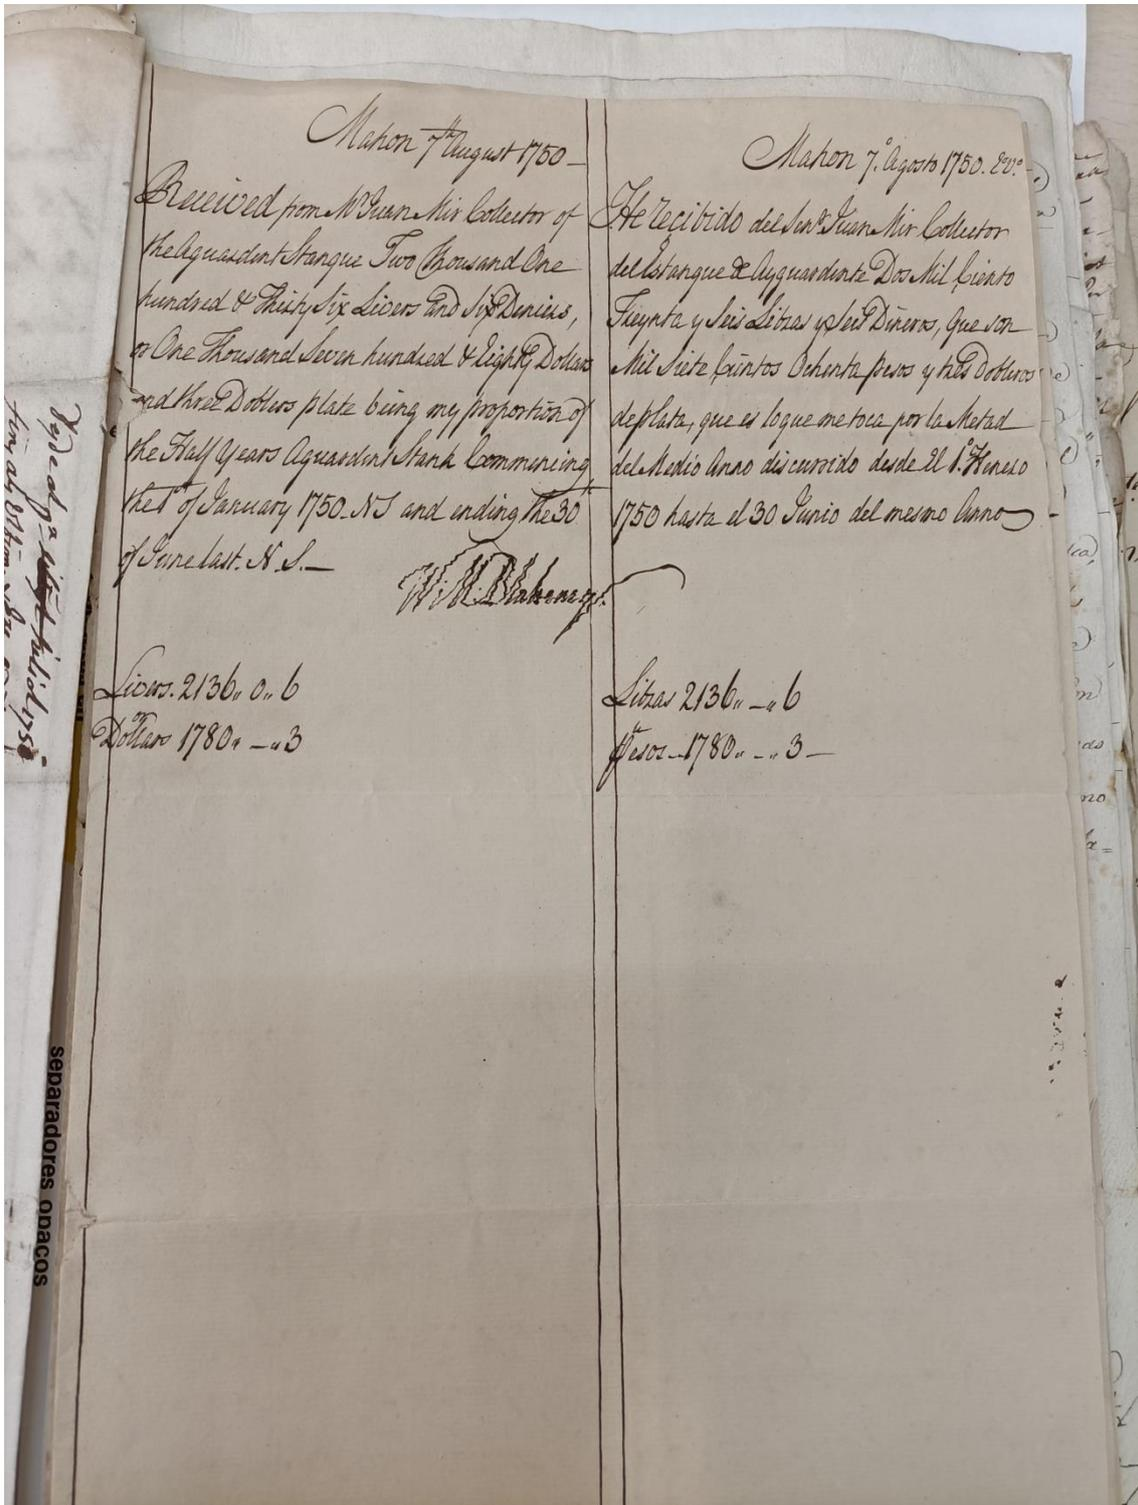 Mahon 7th August 1750 —
Received from Mr Juan Mir Collector of
the Aguardent Stanque Two Thousand One
hundred & Thirty Six Livers and Six Deniers,
or One Thousand Seven hundred & Eighty Dollars
and three Doblers plate being my proportion of
the Half Years Aguardent Stank Commencing
the 1st of January 1750 NS and ending the 30th
of June last. N. S. —
Wm Blakeney.
Livers. 2136 " 0 " 6
or
Dollars 1780 " — " 3
Mahon 7.º Agosto 1750.
He recibido del Senr. Juan Mir Collector
del Estanque de Ayguardente Dos Mil Ciento
Treynta y Seis Libras y Seis Dineros, que son
Mil Siete Cientos Ochenta pesos y tres Dobleros
de plata, que es loque me toca por la Metad
del Medio Anno discurrido desde El 1.º Henero
1750 hasta el 30 Junio del mesmo Anno
Libras 2136 " — " 6
Pesos — 1780 " — " 3 —
separadores opacos